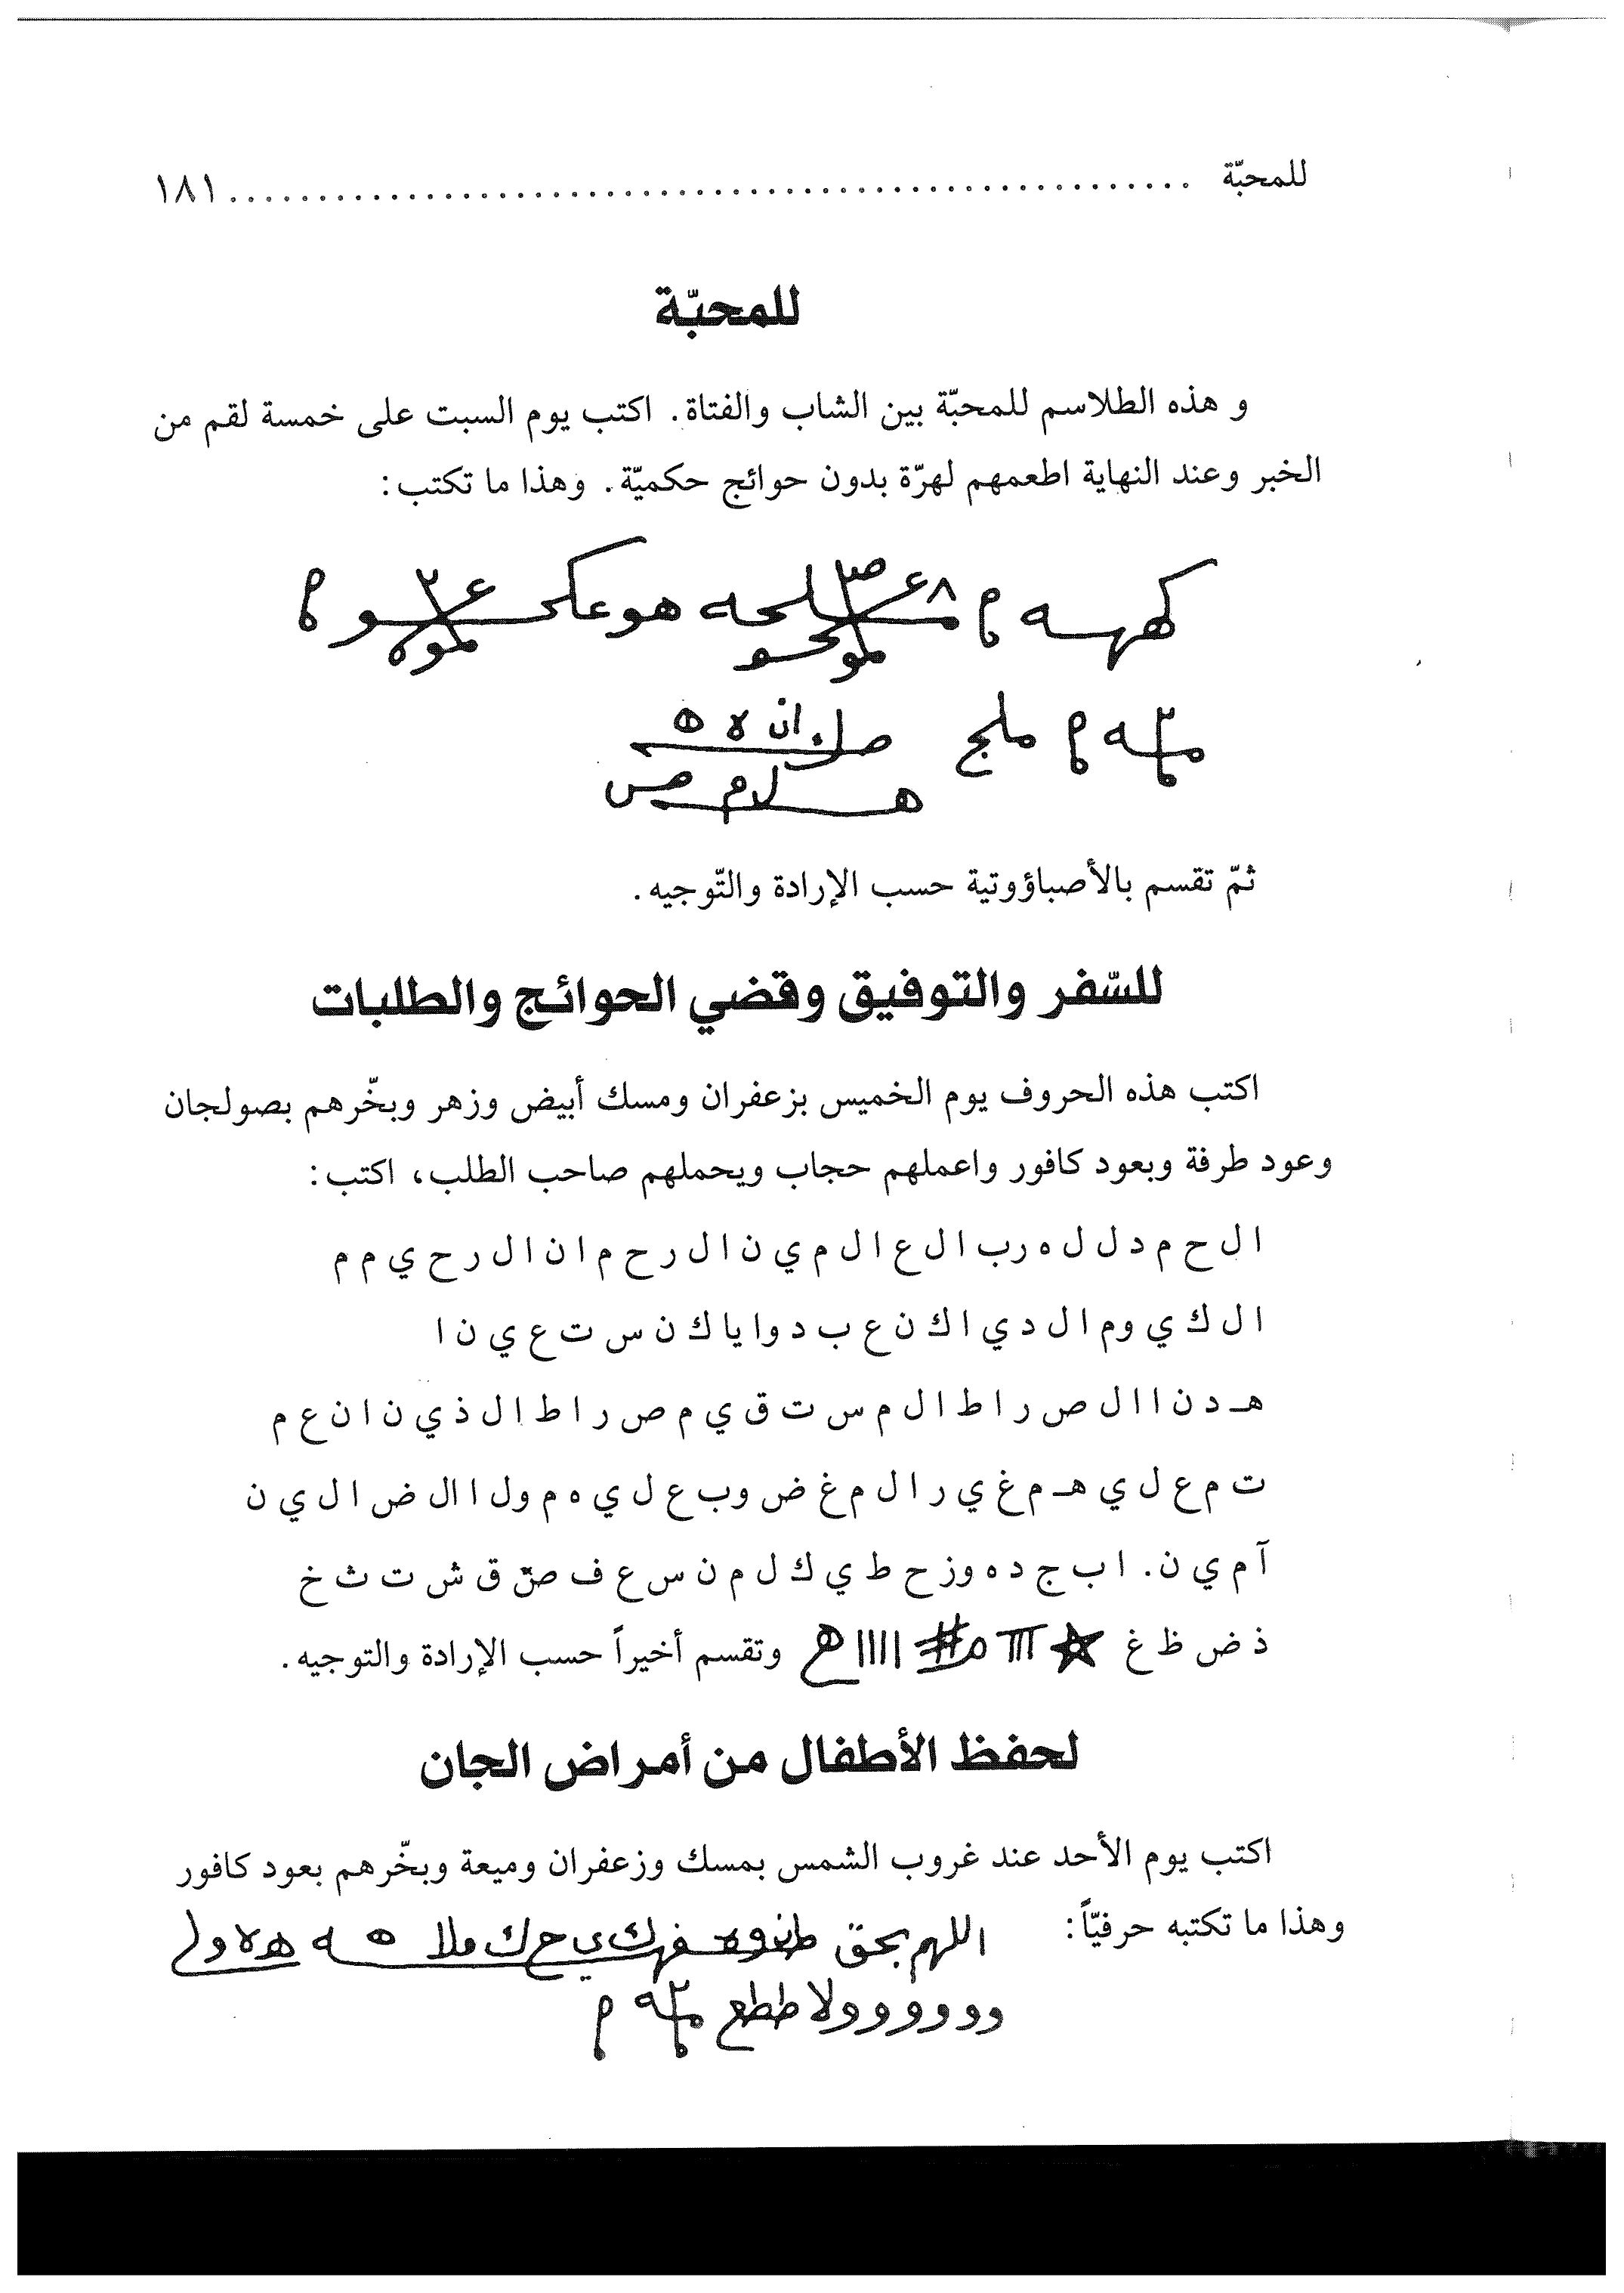 للمحبّة ........................................................ ١٨١
للمحبّة
و هذه الطلاسم للمحبّة بين الشاب والفتاة. اكتب يوم السبت على خمسة لقم من
الخبر وعند النهاية اطعمهم لهرّة بدون حوائج حكميّة. وهذا ما تكتب:
ثمّ تقسم بالأصباؤوتية حسب الإرادة والتّوجيه.
للسّفر والتوفيق وقضي الحوائج والطلبات
اكتب هذه الحروف يوم الخميس بزعفران ومسك أبيض وزهر وبخّرهم بصولجان
وعود طرفة وبعود كافور واعملهم حجاب ويحملهم صاحب الطلب، اكتب:
ا ل ح م د ل ل ه ر ب ا ل ع ا ل م ي ن ا ل ر ح م ا ن ا ل ر ح ي م م
ا ل ك ي و م ا ل د ي ا ك ن ع ب د و ا ي ا ك ن س ت ع ي ن ا
هـ د ن ا ا ل ص ر ا ط ا ل م س ت ق ي م ص ر ا ط ا ل ذ ي ن ا ن ع م
ت م ع ل ي هـ م غ ي ر ا ل م غ ض و ب ع ل ي ه م و ل ا ال ض ا ل ي ن
آ م ي ن. ا ب ج د ه و ز ح ط ي ك ل م ن س ع ف ص ق ش ت ث خ
ذ ض ظ غ وتقسم أخيراً حسب الإرادة والتوجيه.
لحفظ الأطفال من أمراض الجان
اكتب يوم الأحد عند غروب الشمس بمسك وزعفران وميعة وبخّرهم بعود كافور
وهذا ما تكتبه حرفيّاً: اللهم بحق